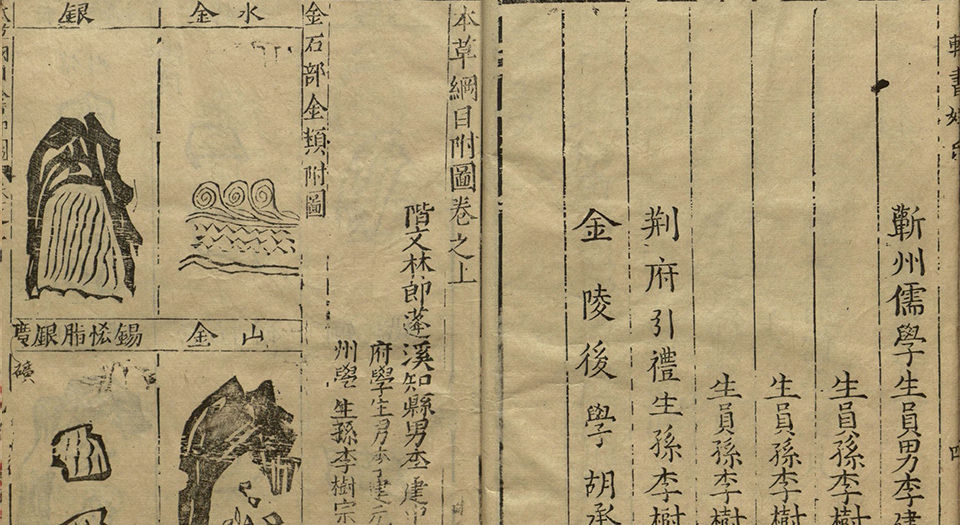 輯書姓氏
四
蘄州儒學生員男李建
生員孫李樹
生員孫李樹
生員孫李樹
荆府引禮生孫李樹
金陵後學胡承
本草綱目附圖卷之上
階文林郎蓬溪知縣男李建中
府學生男李建元
州學生孫李樹宗
金石部金類附圖
水金
銀
山金
錫恡脂銀
礦